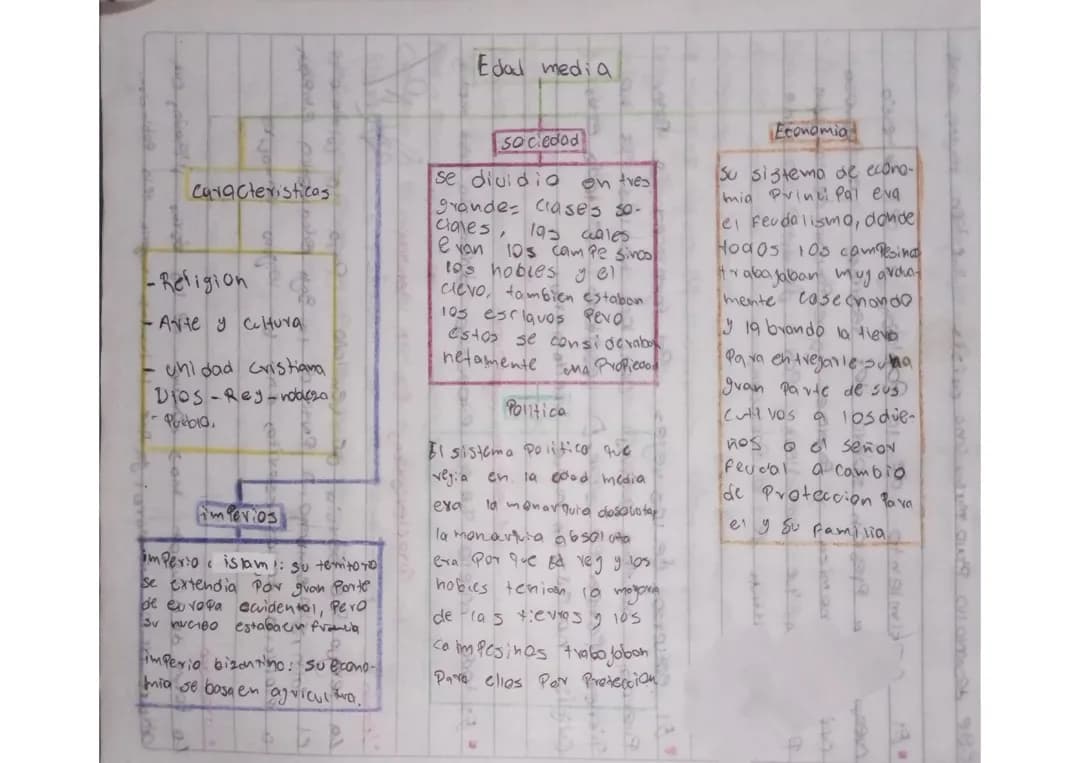 Edad media
Caracteristicas
- Religion
- Arte y cultura
- unidad cristiana
Dios - Rey - nobleza
- Pueblo.
imperios
imperio islam : su territorio
se extendia por gran parte
de europa occidental, pero
su nucleo estaba en francia
imperio bizantino: su econo-
mia se basa en agricultura.
sociedad
se dividio en tres
grandes clases so-
ciales, las cuales
eran los campesinos
los nobles y el
clero, tambien estaban
los esclavos pero
estos se consideraban
netamente una propiedad
Politica
El sistema politico que
regia en la edad media
era la monarquia
la monarquia absoluta
era por que el rey y los
nobles tenian la mayoria
de las tierras y los
campesinos trabajaban
para ellos por proteccion
Economia
su sistema de econo-
mia principal era
el feudalismo, donde
todos los campesinos
trabajaban muy ardua-
mente cosechando
y labrando la tierra
para entregarle
gran parte de sus
cultivos a los due-
ños o el señor
feudal a cambio
de proteccion para
el y su familia